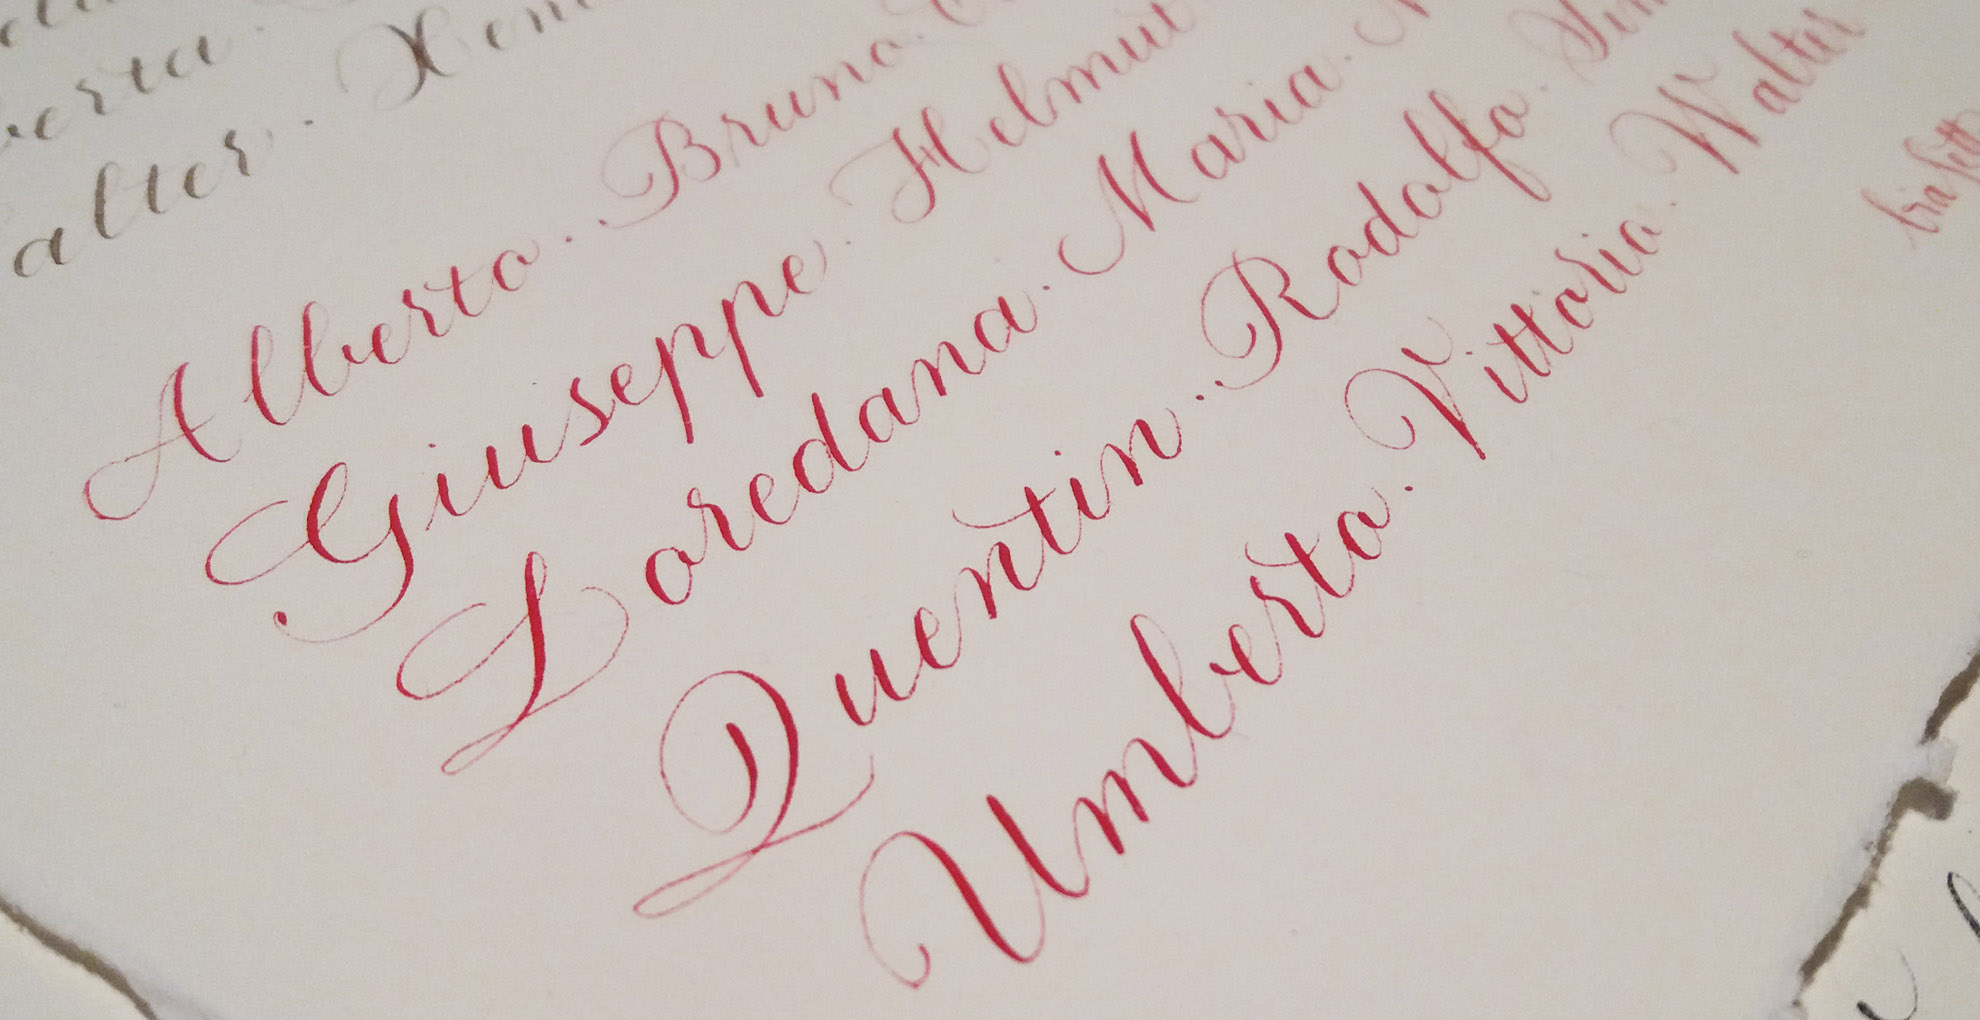 alter. Xen
Alberto. Bruno.
Giuseppe. Helmut
Loredana. Maria.
Quentin. Rodolfo.
Umberto. Vittorio. Walter